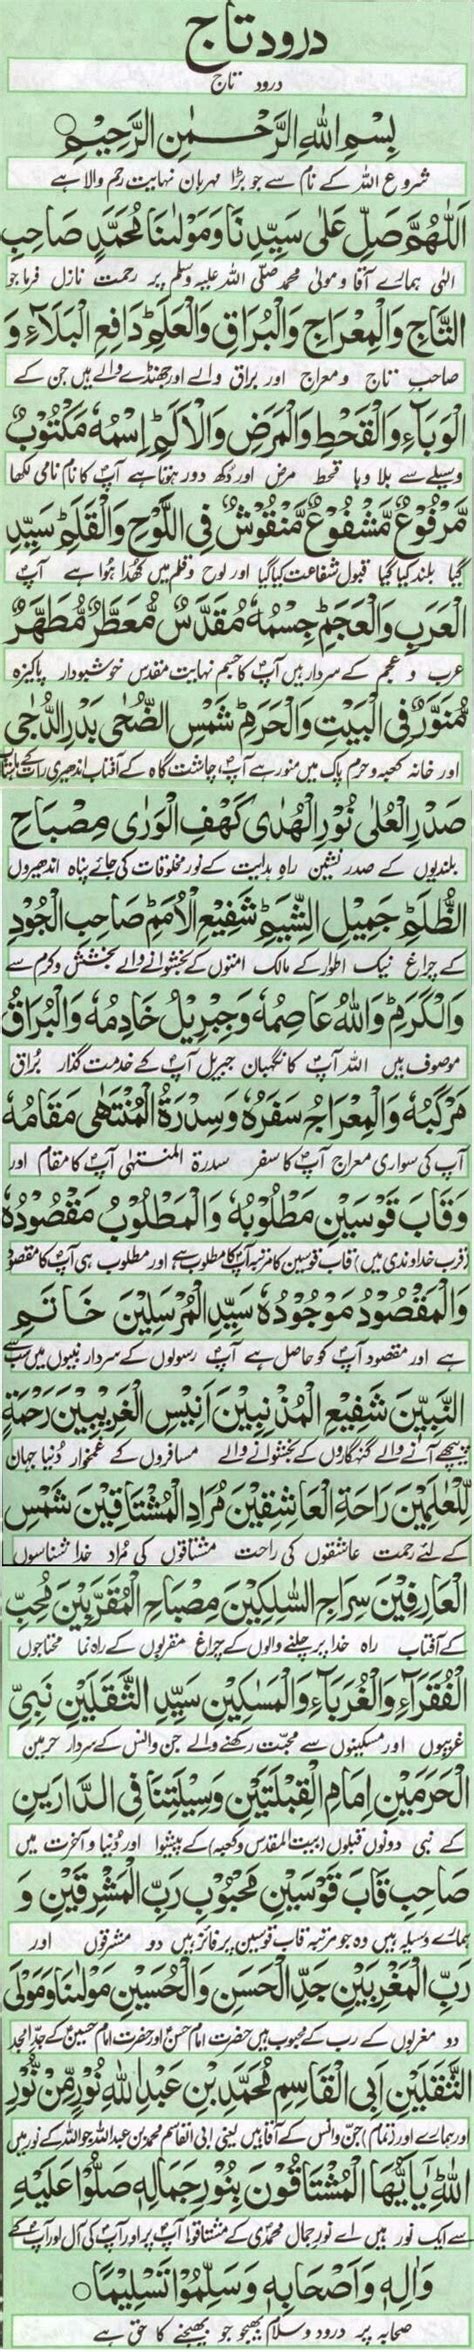 درود تاج
درود تاج
بِسْمِ اللهِ الرَّحْمٰنِ الرَّحِيْمِ
شروع اللہ کے نام سے جو بڑا مہربان نہایت رحم والا ہے
اَللّٰهُمَّ صَلِّ عَلٰى سَيِّدِنَا وَمَوْلٰنَا مُحَمَّدٍ صَاحِبِ
الٰہی ہمارے آقا و مولیٰ محمد صلی اللہ علیہ وسلم پر رحمت نازل فرما جو
التَّاجِ وَالْمِعْرَاجِ وَالْبُرَاقِ وَالْعَلَمِ دَافِعِ الْبَلَآءِ وَ
صاحب تاج و معراج اور براق والے اور جھنڈے والے ہیں جن کے
الْوَبَآءِ وَالْقَحْطِ وَالْمَرَضِ وَالْاَلَمِ اِسْمُهٗ مَكْتُوْبٌ
وسیلے سے بلا وبا قحط مرض اور دکھ دور ہوتا ہے آپ کا نام نامی لکھا
مَّرْفُوْعٌ مَّشْفُوْعٌ مَّنْقُوْشٌ فِى اللَّوْحِ وَالْقَلَمِ سَيِّدِ
گیا بلند کیا گیا قبول شفاعت کیا گیا اور لوح و قلم میں کھدا ہوا ہے آپ
الْعَرَبِ وَالْعَجَمِ جِسْمُهٗ مُقَدَّسٌ مُّعَطَّرٌ مُّطَهَّرٌ
عرب و عجم کے سردار ہیں آپ کا جسم نہایت مقدس خوشبودار پاکیزہ
مُّنَوَّرٌ فِى الْبَيْتِ وَالْحَرَمِ شَمْسِ الضُّحٰى بَدْرِ الدُّجٰى
اور خانہ کعبہ و حرم پاک میں منور ہے آپ چاشت گاہ کے آفتاب اندھیری رات کے ماہتاب
صَدْرِ الْعُلٰى نُوْرِ الْهُدٰى كَهْفِ الْوَرٰى مِصْبَاحِ
بلندیوں کے صدر نشین راہ ہدایت کے نور مخلوقات کی جائے پناہ اندھیروں
الظُّلَمِ جَمِيْلِ الشِّيَمِ شَفِيْعِ الْاُمَمِ صَاحِبِ الْجُوْدِ
کے چراغ نیک اطوار کے مالک امتوں کے بخشوانے والے بخشش و کرم سے
وَالْكَرَمِ وَاللهُ عَاصِمُهٗ وَجِبْرِيْلُ خَادِمُهٗ وَالْبُرَاقُ
موصوف ہیں اللہ آپ کا نگہبان جبریل آپ کے خدمت گذار براق
مَرْكَبُهٗ وَالْمِعْرَاجُ سَفَرُهٗ وَسِدْرَةُ الْمُنْتَهٰى مَقَامُهٗ
آپ کی سواری معراج آپ کا سفر سدرۃ المنتہی آپ کا مقام اور
وَقَابَ قَوْسَيْنِ مَطْلُوْبُهٗ وَالْمَطْلُوْبُ مَقْصُوْدُهٗ
(قرب خداوندی میں) قاب قوسین کا مرتبہ آپ کا مطلوب ہے اور مطلوب ہی آپ کا مقصود
وَالْمَقْصُوْدُ مَوْجُوْدُهٗ سَيِّدِ الْمُرْسَلِيْنَ خَاتَمِ
ہے اور مقصود آپ کو حاصل ہے آپ رسولوں کے سردار نبیوں میں سب سے
النَّبِيّٖنَ شَفِيْعِ الْمُذْنِبِيْنَ اَنِيْسِ الْغَرِيْبِيْنَ رَحْمَةٍ
پیچھے آنے والے گنہگاروں کے بخشوانے والے مسافروں کے غمخوار دنیا جہان
لِّلْعٰلَمِيْنَ رَاحَةِ الْعَاشِقِيْنَ مُرَادِ الْمُشْتَاقِيْنَ شَمْسِ
کے لئے رحمت عاشقوں کی راحت مشتاقوں کی مراد خدا شناسوں
الْعَارِفِيْنَ سِرَاجِ السّٰلِكِيْنَ مِصْبَاحِ الْمُقَرَّبِيْنَ مُحِبِّ
کے آفتاب راہ خدا پر چلنے والوں کے چراغ مقربوں کے راہ نما محتاجوں
الْفُقَرَآءِ وَالْغُرَبَآءِ وَالْمَسٰكِيْنِ سَيِّدِ الثَّقَلَيْنِ نَبِىِّ
غریبوں اور مسکینوں سے محبت رکھنے والے جن و انس کے سردار حرمین
الْحَرَمَيْنِ اِمَامِ الْقِبْلَتَيْنِ وَسِيْلَتِنَا فِى الدَّارَيْنِ
کے نبی دونوں قبلوں (بیت المقدس و کعبہ) کے پیشوا اور دنیا و آخرت میں
صَاحِبِ قَابَ قَوْسَيْنِ مَحْبُوْبِ رَبِّ الْمَشْرِقَيْنِ وَ
ہمارے وسیلہ ہیں وہ جو مرتبہ قاب قوسین پر فائز ہیں دو مشرقوں اور
رَبِّ الْمَغْرِبَيْنِ جَدِّ الْحَسَنِ وَالْحُسَيْنِ مَوْلٰنَا وَمَوْلَى
دو مغربوں کے رب کے محبوب ہیں حضرت امام حسن اور حضرت امام حسین کے جد امجد
الثَّقَلَيْنِ اَبِى الْقَاسِمِ مُحَمَّدِ بْنِ عَبْدِ اللهِ نُوْرٍ مِّنْ نُّوْرِ
اور ہمارے اور (تمام) جن و انس کے آقا ہیں یعنی ابی القاسم محمد بن عبد اللہ جو اللہ کے نور میں
اللهِ يٰٓاَيُّهَا الْمُشْتَاقُوْنَ بِنُوْرِ جَمَالِهٖ صَلُّوْا عَلَيْهِ
سے ایک نور ہیں اے نور جمال محمدی کے مشتاقو! آپ پر اور آپ کی آل اور آپ کے
وَاٰلِهٖ وَاَصْحَابِهٖ وَسَلِّمُوْا تَسْلِيْمًا
صحابہ پر درود و سلام بھیجو جو بھیجنے کا حق ہے